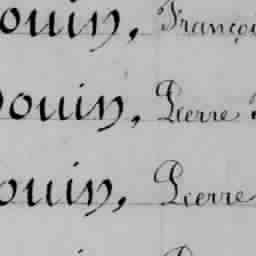 ouin, Françoi
ouin, Pierre
ouin, Pierre